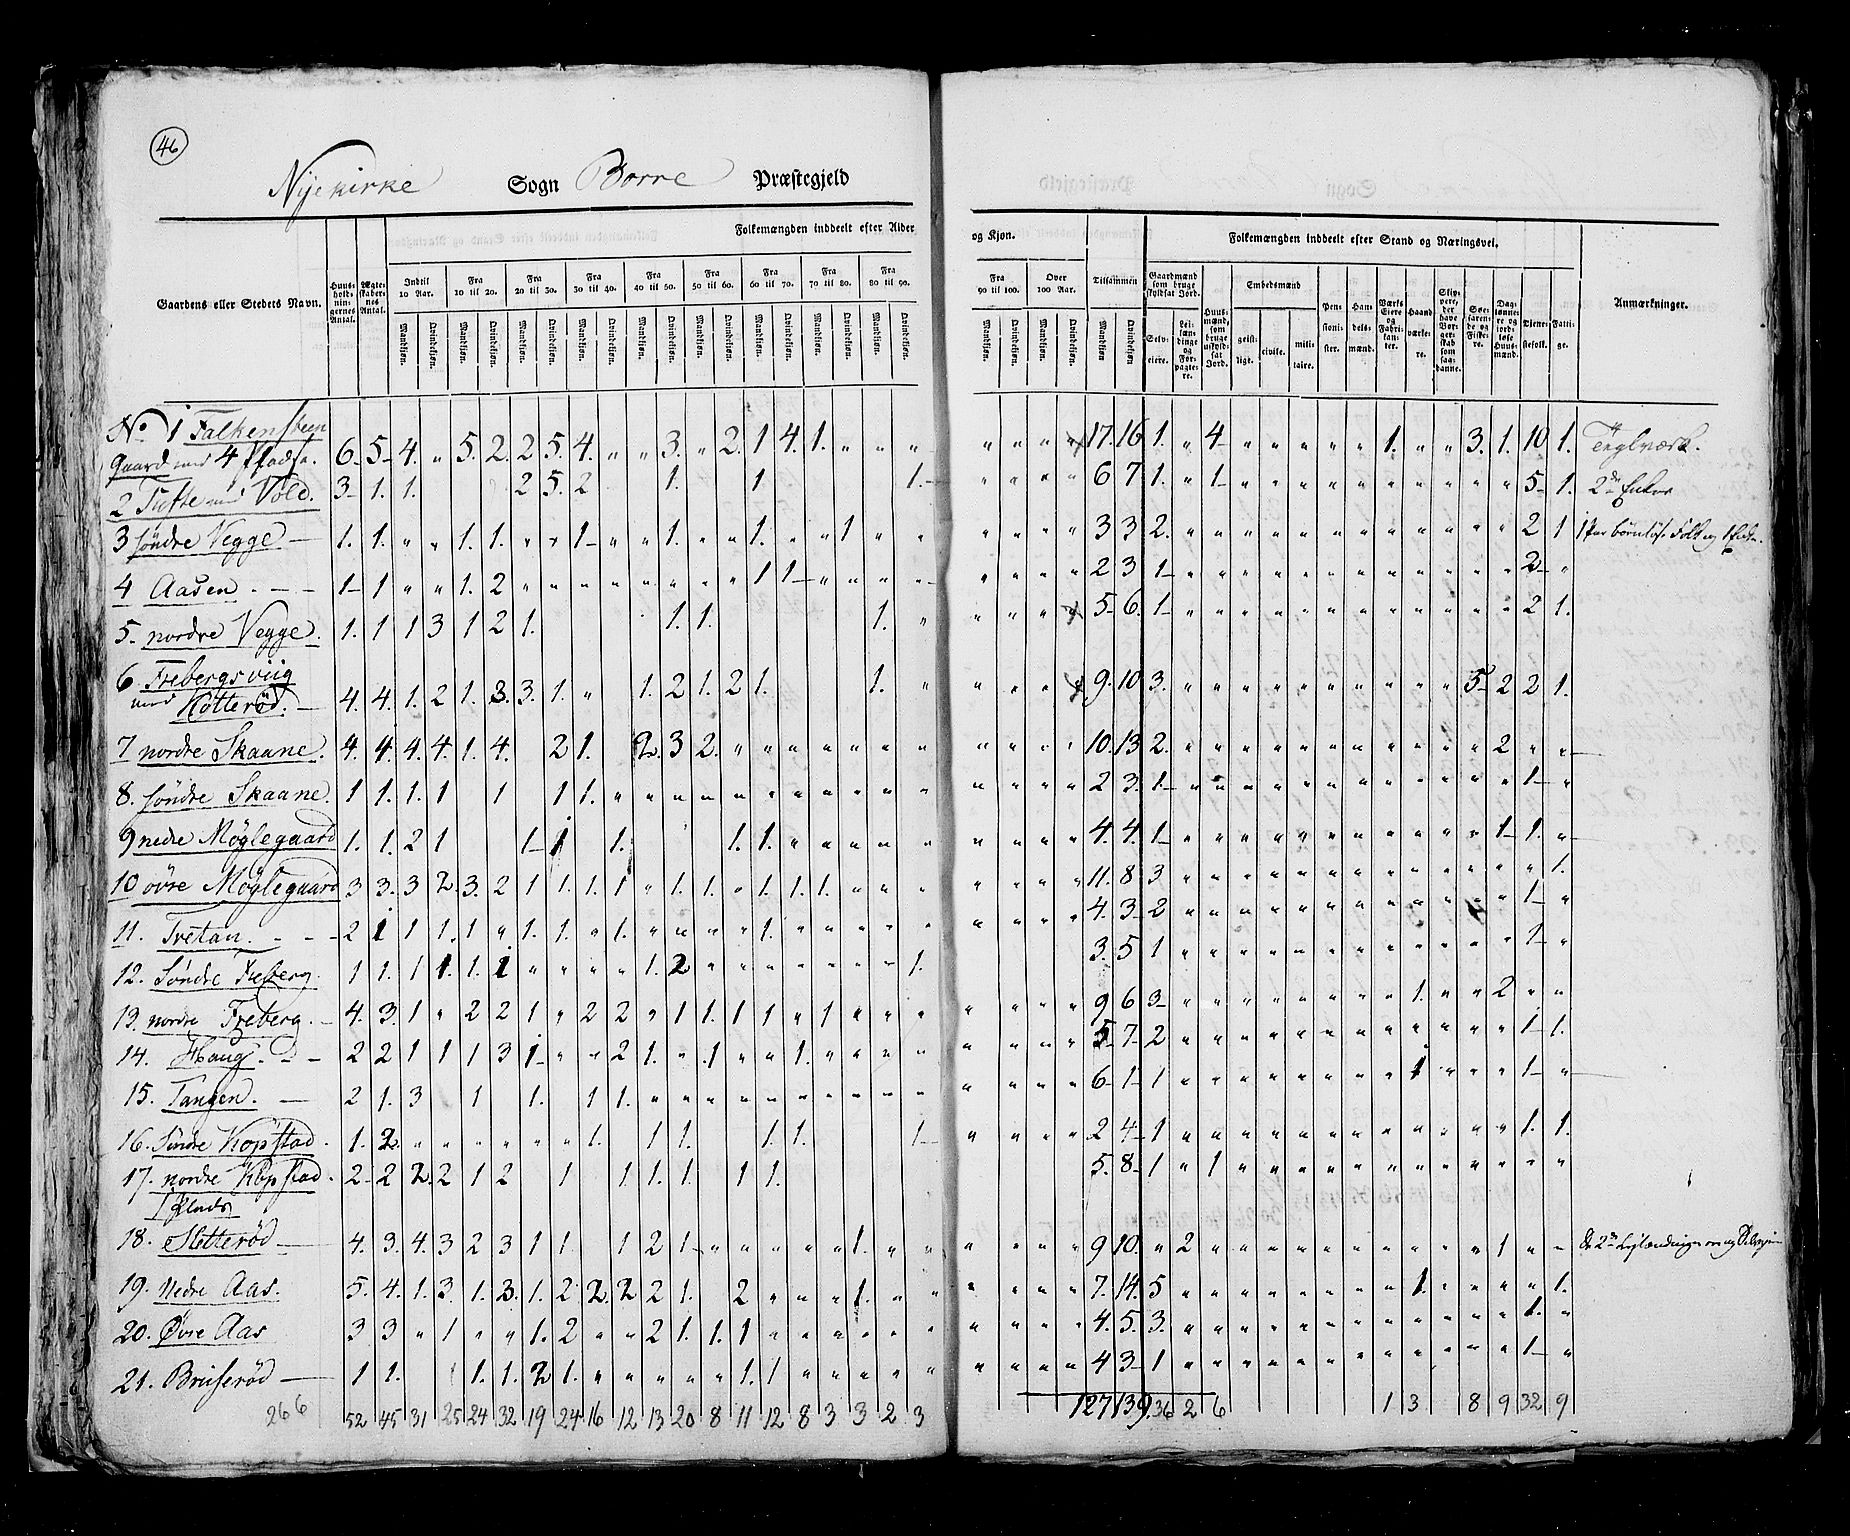 46
Nijekirke Sogn Borre Præstegjeld
Folkemængden inddeelt efter Alder og Kjøn. Folkemængden inddeelt efter Stand og Næringsvei.
Gaardens eller Stedets Navn. Huusholdningernes Antal. Ægteskabernes Antal. Indtil 10 Aar. Fra 10 til 20. Fra 20 til 30. Fra 30 til 40. Fra 40 til 50. Fra 50 til 60. Fra 60 til 70. Fra 70 til 80. Fra 80 til 90. Fra 90 til 100. Over 100 Aar. Tilsammen Gaardmænd som bruge skyldsat Jord. Huusmænd, som bruge uskyldsat Jord. Embedsmænd Pensionister. Handelsmænd. Værks Eiere og Fabrikanter. Haandværkere. Søefarende og Fiskere. Daglønnere og jordløse Huusmænd. Tjenestefolk. Fattige. Anmærkninger.
Mandkjøn. Qvindekjøn. Mandkjøn. Qvindekjøn. Mandkjøn. Qvindekjøn. Mandkjøn. Qvindekjøn. Mandkjøn. Qvindekjøn. Mandkjøn. Qvindekjøn. Mandkjøn. Qvindekjøn. Mandkjøn. Qvindekjøn. Mandkjøn. Qvindekjøn. Mandkjøn. Qvindekjøn. Mandkjøn. Qvindekjøn. Mandkjøn. Qvindekjøn. Selveiere. Leilændinge og Forpagtere. geistlige. civile. militaire.
No 1 Falkensteen
Gaard med 4 Pladse. 6. 5. 4. " 5. 2. 2. 5. 4. " " 3. " 2. 1 4. 1. " " " " " " 17. 16 1. " 4 " " " " " 1. " " 3. 1. 10 1. Teglværk.
2 Tufte med Vold. 3 1. 1. 2 5. 2 1. 1 1. " " " " 6 7 1. " 1 " " " " " " " " " " 5 1.
3 søndre Vegge 1. 1. " " 1. 1. " " 1 " " 1. " " 1. " " 1 " " " " " " 3 3 2. " " " " " " " " " " " " 2 1
4 Aasen 1 1 " " 1. 2 " " " " " " " " 1 1 " " " " " " " " 2 3 1 " " " " " " " " " " " " 2 "
5. nordre Vegge. 1. 1 1 3 1 2 1. 1. 1. 1. " " " " 5 6. 1 " " " " " " " " " " " " 2 1.
6 Frebergsviig
med Kotterød. 4. 4. 1. 2 1. 3. 3. 1. " 1. 2 1. 2 1. 1. " " " " 9. 10 3. " " " " " " " " " " 5 2 2 1.
7 nordre Skaane. 4. 4. 4. 4. 1. 4. 2 1. 2. 3 2. " " " " " " " " " " " 10. 13 2. " " " " " " " " " " " 2 " "
8. søndre Skaane. 1 1. 1. 1 1 1 1. " " " " " " " " " " " " " " " 2 3. 1 " " " " " " " " " " " " 1 "
9 nedre Møglegaard 1. 1. 2 1 1 1 1. 1. 1. " " " " " " " " 4. 4. 1 " " " " " " " " " " " 1 1. "
10 øvre Møglegaard 3 3. 3 2. 3. 2 1 1. 1. 1 " 1. 1. " 1. 1. 1. " " " " " " " 11. 8 3 " " " " " " " " " " " " " 1.
11. Tretan. 2 1 1 1. 1 " 1. 1. " 1. " " " " 1. " " " " " " " " " 4. 3 2 " " " " " " " " " " " " 1 "
12. Søndre Freberg. 1 1. 1 1. 1. 1 " " " " 1. 2 " " " " " " " 1. 3. 5 1 " " " " " " " " " " " " 1 "
13. nordre Freberg. 4. 3. 1 " 2 2 1 " 2 2 " 1 1. 1 1 " 1 " " " " " " " 9 6 3 " " " " " " " " 1. " " 2 " "
14. Haug. 2 2 1 1 1 3 1 " " 2 1. " 1 " " 1. " " " " " " " " 5 7 2 " " " " " " " " " " " " 1 1.
15. Tangen. 2 1. 3 1 1. 1 1. " " " " " " " " " " " " " " 6 1 1 " " " " " " " " 1 " " " 1 "
16. Søndre Kopstad. 1. 2. " " " " " " 1. 1 1. 1. 1. 1 " " " " 2 4 1 " " " " " " " " " " " " 1. 1.
17. nordre Kopstad. 2 2 2. 2 1 2 1 1. 1. 1. 1 1. 5. 8 1 " 1 " " " " " " " " " " " "
1 Plads
18. Sletterød 4. 3. 4. 3 2 3 1 1. 1 2 1 " " " " " 1. " " " " " " 9 10. " 2 " " " " " " " " " " 1 " "
19. Nedre Aas. 5. 4. 1. 3. 1. 3. 1. 2 2. 2 2 1. 2 " " " 1. " " " " " " 7. 14. 5 " " " " " " " " 1. " " " " 1.
20. Øvre Aas 3 3 " 1 " " 1. 2 " " 2 1. 1. 1 " " " " " " " " " " 4. 5. 3. " " " " " " " " " " " " 1. "
21. Bruserød 1 1. 1. 1. 2 1. " " " " " 1. 1 " " " " " " " " " 4 3 1 " " " " " " " " " " " " 1 "
266 52 45 31 25 24 32 19 24 16 12 13 20 8 11 12 8 3 3 2 3 127 139. 36 2 6 1 3 8 9 32 9